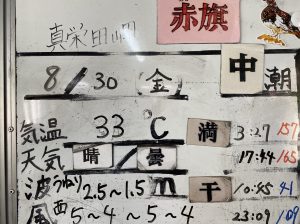 真栄田岬 赤旗
8/30 (金) 中潮
気温 33℃ 満 3:27 157
天気 晴/曇 17:44 165
波(うねり) 2.5~1.5m 干 10:45 91
風 西 5~4~5~4 23:09 108